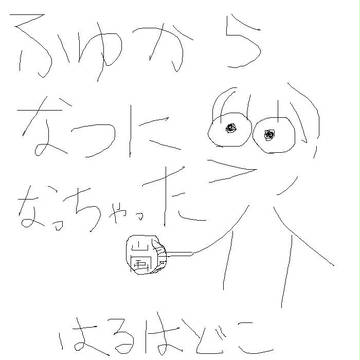 ふゆから
なつに
なっちゃった
はるはどこ